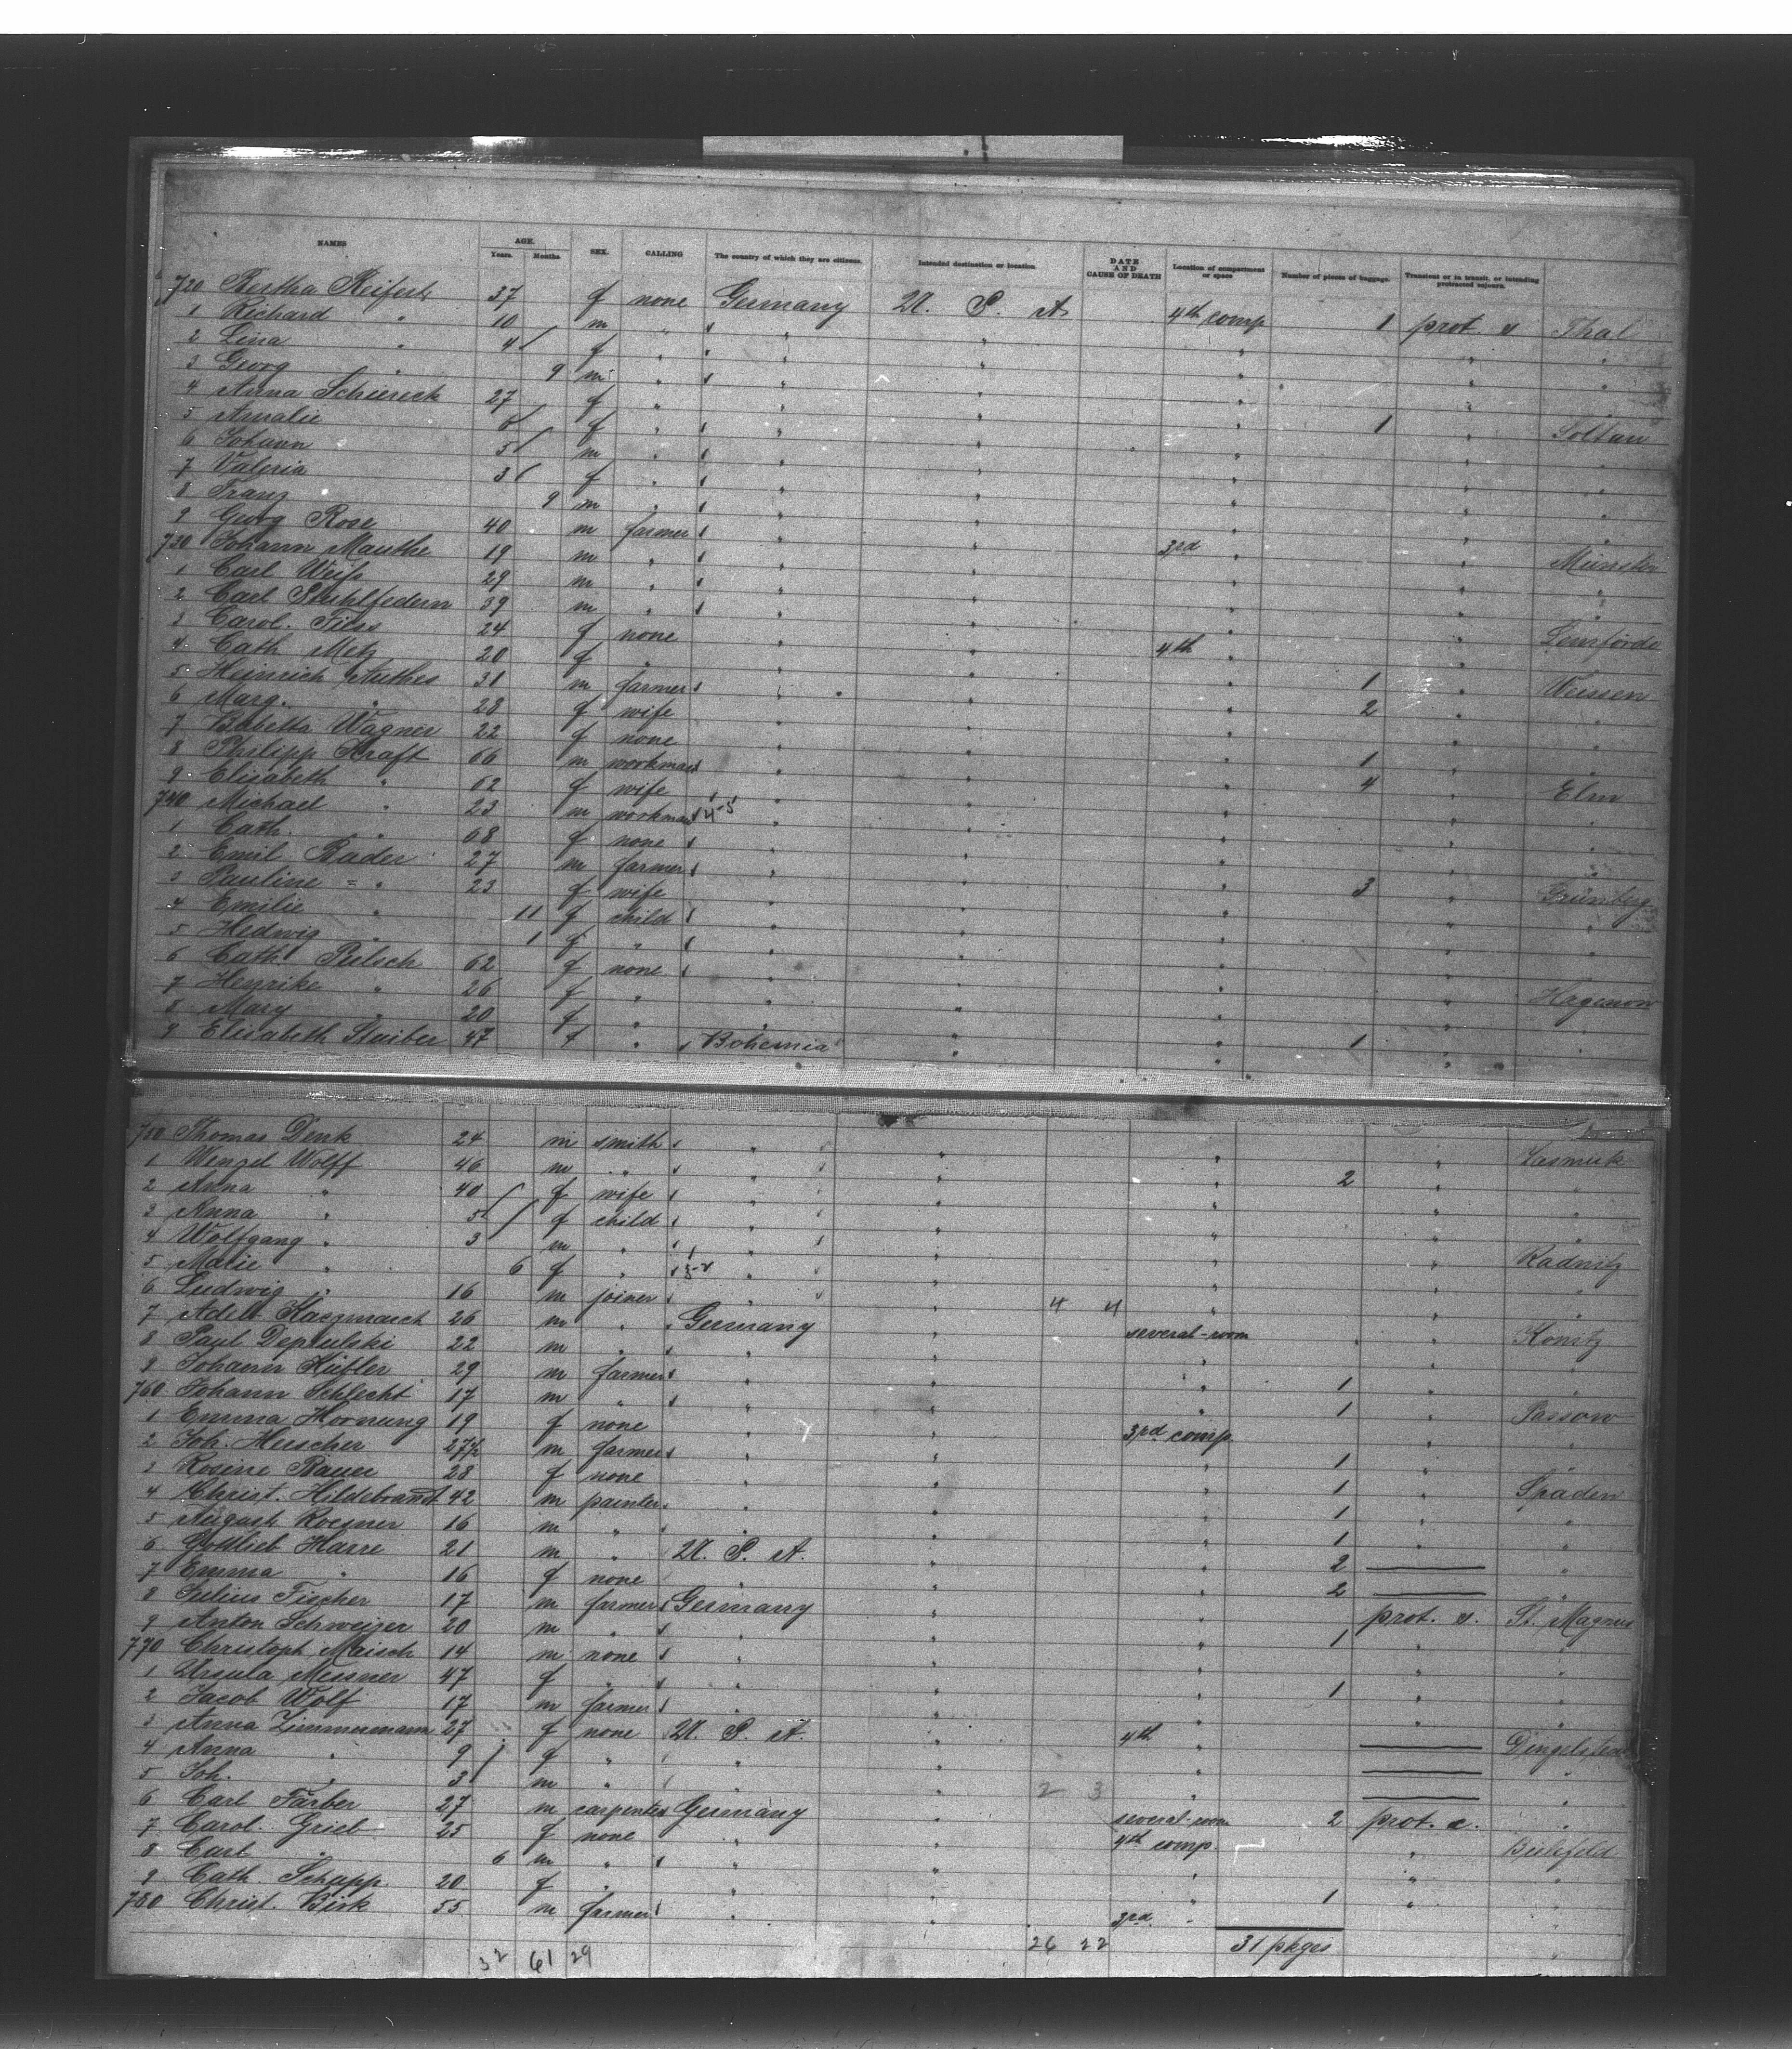 NAMES AGE. Years. Months. SEX. CALLING The country of which they are citizens. Intended destination or location DATE AND CAUSE OF DEATH Location of compartment or space Number of pieces of baggage. Transient or in transit, or intending protracted sojourn.
720 Bertha Reifert 37 f none Germany U. S. A. 4th comp 1 prot. s Thal
1 Richard " 10 m " " " " " "
2 Lina " 4 f " " " " " "
3 Georg " 9 m " " " " "
4 Anna Schiereck 27 f " " " " 1 " Soltau
5 Amalie 6 f " " " " " "
6 Johann 5 m " " " " " "
7 Valeria 3 f " " " " " "
8 Franz 9 m " " " " " "
9 Georg Rose 40 m farmer " " 3rd " " Münster
730 Johann Mauthe 19 m " " " " " "
1 Carl Weiß 29 m " " " " " "
2 Carl Stuhlfedern 39 m " " " " " Lemförde
3 Carol. Fiess 24 f none " " 4th " "
4 Cath Metz 20 f " " " " 1 " Weissen
5 Heinrich Anthes 31 m farmer " " " 2 " "
6 Marg. " 28 f wife " " " " "
7 Babetta Wagner 22 f none " " " 1 " "
8 Philipp Kraft 66 m workman " " " 4 " Elm
9 Elisabeth " 62 f wife " " " " "
740 Michael " 23 m workman " " " " "
1 Cath. " 68 f none " " " " "
2 Emil Bader 27 m farmer " " " 3 " Grünberg
3 Pauline = " 23 f wife " " " " "
4 Emilie " 11 f child " " " " "
5 Hedwig " 1 f " " " " " "
6 Cath. Pulsch 62 f none " " " " Hagenow
7 Henrike " 26 f " " " " " "
8 Mary " 20 f " " " " 1 " "
9 Elisabeth Staiber 47 f " Bohemia " " "
750 Thomas Denk 24 m smith " " " "
1 Wenzel Wolff 46 m " " " " 2 " "
2 Anna " 40 f wife " " " " "
3 Anna " 5 f child " " " " "
4 Wolfgang " 3 m " " " " " Radnitz
5 Marie " 6 f " " " " " "
6 Ludwig " 16 m joiner " " 4 4 " " "
7 Adelb Kaczmarck 26 m " Germany " several-room " Konitz
8 Paul Depulski 22 m " " " " " "
9 Johann Küfler 29 m farmer " " " 1 " "
760 Johann Schlecht 17 m " " " " 1 " Passow
1 Emma Hornung 19 f none " " 3rd comp " "
2 Joh. Heischer m farmer " " " 1 " "
3 Rosine Bauer 28 f none " " " 1 " Spaden
4 Christ. Hildebrandt 42 m painter " " " 1 " "
5 August Roesner 16 m " " " " 1 " "
6 Gottlieb Harre 21 m " U. S. A. " " 2 — "
7 Emma " 16 f none " " " 2 — "
8 Julius Fischer 17 m farmer Germany " " prot. s. St. Magnus
9 Anton Schweizer 20 m " " " " 1 " "
770 Christoph Maisch 14 m none " " " " "
1 Ursula Messner 47 f " " " " 1 " "
2 Jacob Wolf 17 m farmer " " " " "
3 Anna Zimmermann 27 f none U. S. A. " 4th " — Dingelstedt
4 Anna " 9 f " " " " — "
5 Joh. " 3 m " " " 2 3 " — "
6 Carl Färber 27 m carpenter Germany " several-room 2 prot. s. "
7 Carol. Grieb 25 f none " " 4th comp " Bielefeld
8 Carl " 6 m " " " " " "
9 Cath. Schupp 20 f " " " " 1 " "
780 Christ. Birk 55 m farmer " " 3rd " "
32 61 29 26 22 31 pkges